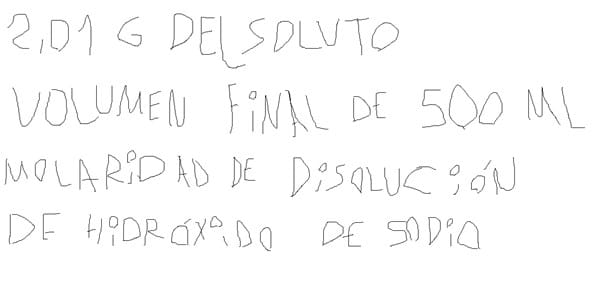 2,01 G DEL SOLUTO
VOLUMEN FiNAL DE 500 ML
MOLARiDAD DE DiSOLUCiÓN
DE HiDRÓXiDO DE SODiO